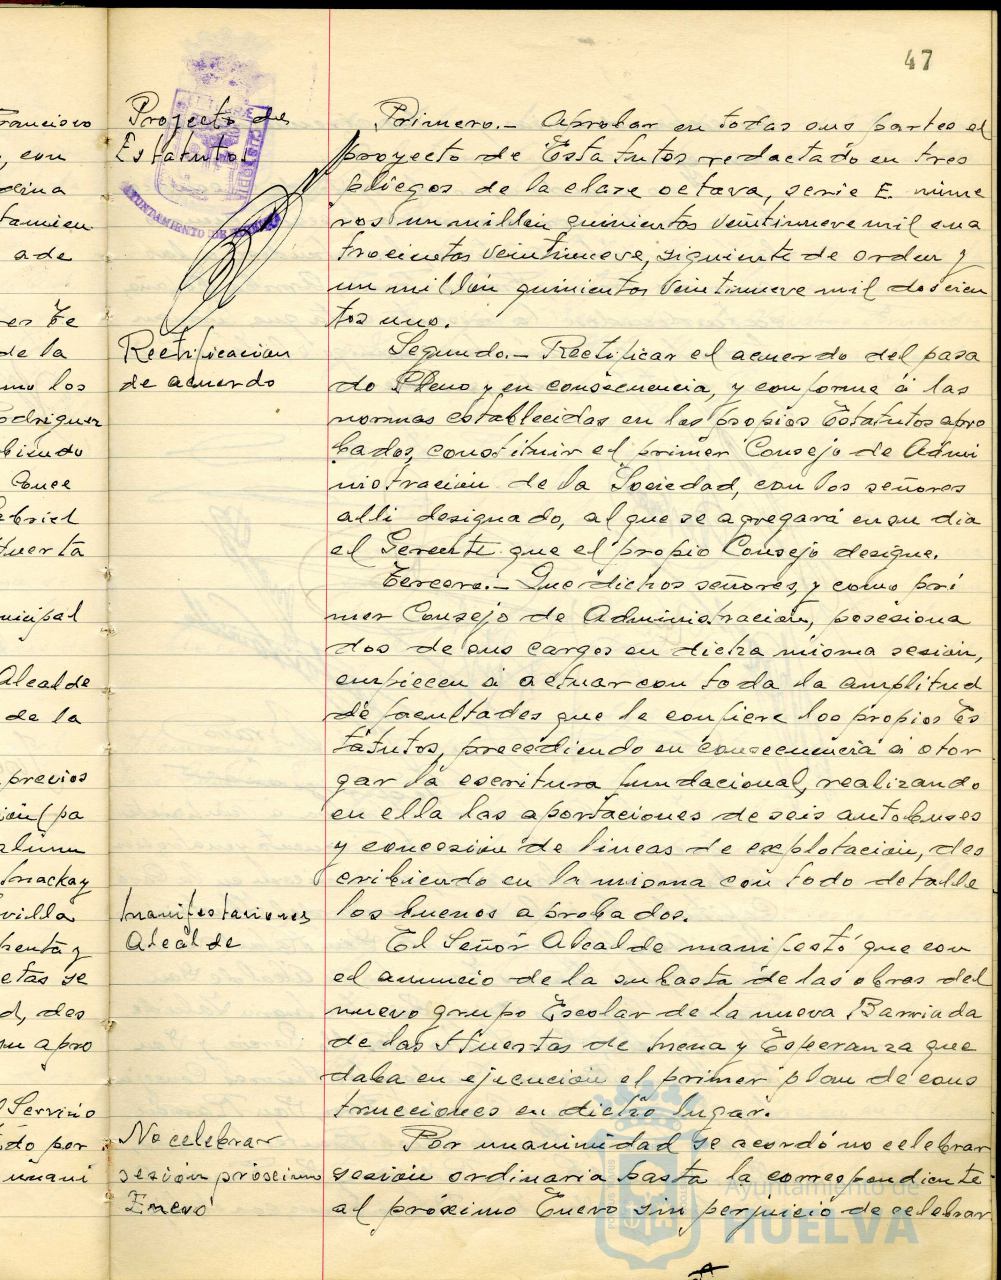 47
Proyecto de
Estatutos
AYUNTAMIENTO DE HUELVA
Primero.- Aprobar en todas sus partes el
proyecto de Estatutos redactado en tres
pliegos de la clase octava, serie E. núme
ros un millón quinientos veintinueve mil cua
trocientos veintinueve, siguiente de orden y
un millón quinientos veintinueve mil doscien
tos uno.
Rectificacion
de acuerdo
Segundo.- Rectificar el acuerdo del pasa
do Pleno y en consecuencia, y conforme á las
normas establecidas en los propios Estatutos apro
bados, constituir el primer Consejo de Admi
nistración de la Sociedad, con los señores
alli designado, al que se agregará en su dia
el Gerente que el propio Consejo designe.
Tercero.- Que dichos señores, y como pri
mer Consejo de Administración, posesiona
dos de sus cargos en dicha misma sesión,
empiecen á actuar con toda la amplitud
de facultades que le confiere los propios Es
tatutos, procediendo en consecuencia á otor
gar la escritura fundacional, realizando
en ella las aportaciones de seis autobuses
y concesión de lineas de explotación, des
cribiendo en la misma con todo detalle
los buenos aprobados.
Manifestaciones
Alcalde
El Señor Alcalde manifestó que con
el anuncio de la subasta de las obras del
nuevo grupo Escolar de la nueva Barriada
de las Huertas de Mena y Esperanza que
daba en ejecución el primer plan de cons
trucciones en dicho lugar.
No celebrar
sesión próximo
Enero
Por unanimidad se acordó no celebrar
sesión ordinaria hasta la correspondiente
al próximo Enero sin perjuicio de celebrar
Ayuntamiento de
HUELVA
Francisco
, con
tamien
ade
de la
mo los
odriguez
Gabriel
Huerta
nicipal
Alcalde
de la
previos
Mackay
villa
etas se
d, des
su apro
Servicio
do por
unani